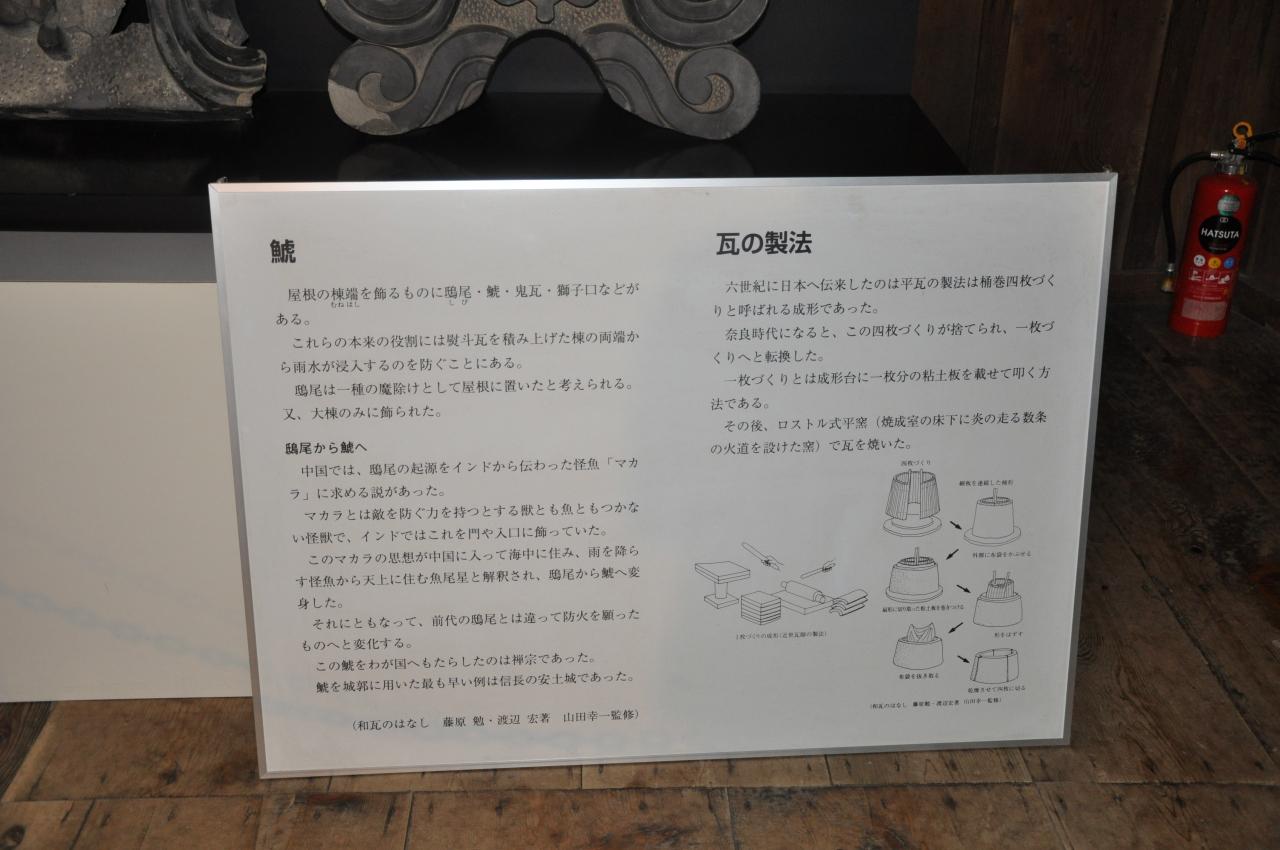 鯱
屋根の棟端を飾るものに鴟尾・鯱・鬼瓦・獅子口などが
むねはし
しび
ある。
これらの本来の役割には熨斗瓦を積み上げた棟の両端か
ら雨水が浸入するのを防ぐことにある。
鴟尾は一種の魔除けとして屋根に置いたと考えられる。
又、大棟のみに飾られた。
鴟尾から鯱へ
中国では、鴟尾の起源をインドから伝わった怪魚「マカ
ラ」に求める説があった。
マカラとは敵を防ぐ力を持つとする獣とも魚ともつかな
い怪獣で、インドではこれを門や入口に飾っていた。
このマカラの思想が中国に入って海中に住み、雨を降ら
す怪魚から天上に住む魚尾星と解釈され、鴟尾から鯱へ変
身した。
それにともなって、前代の鴟尾とは違って防火を願った
ものへと変化する。
この鯱をわが国へもたらしたのは禅宗であった。
鯱を城郭に用いた最も早い例は信長の安土城であった。
（和瓦のはなし　藤原 勉・渡辺 宏著　山田幸一監修）
瓦の製法
六世紀に日本へ伝来したのは平瓦の製法は桶巻四枚づく
りと呼ばれる成形であった。
奈良時代になると、この四枚づくりが捨てられ、一枚づ
くりへと転換した。
一枚づくりとは成形台に一枚分の粘土板を載せて叩く方
法である。
その後、ロストル式平窯（焼成室の床下に炎の走る数条
の火道を設けた窯）で瓦を焼いた。
四枚づくり
細板を連綴した桶形
外側に布袋をかぶせる
扇形に切り取った粘土板を巻きつける
形をはずす
布袋を抜き取る
乾燥させて四枚に切る
1枚づくりの成形（近世瓦師の製法）
（和瓦のはなし　藤原勉・渡辺宏著　山田幸一監修）
HATSUTA